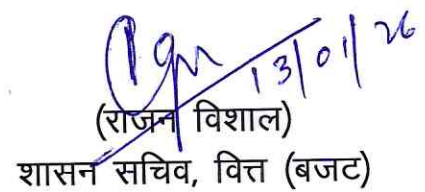 13/01/26
(राजन विशाल)
शासन सचिव, वित्त (बजट)